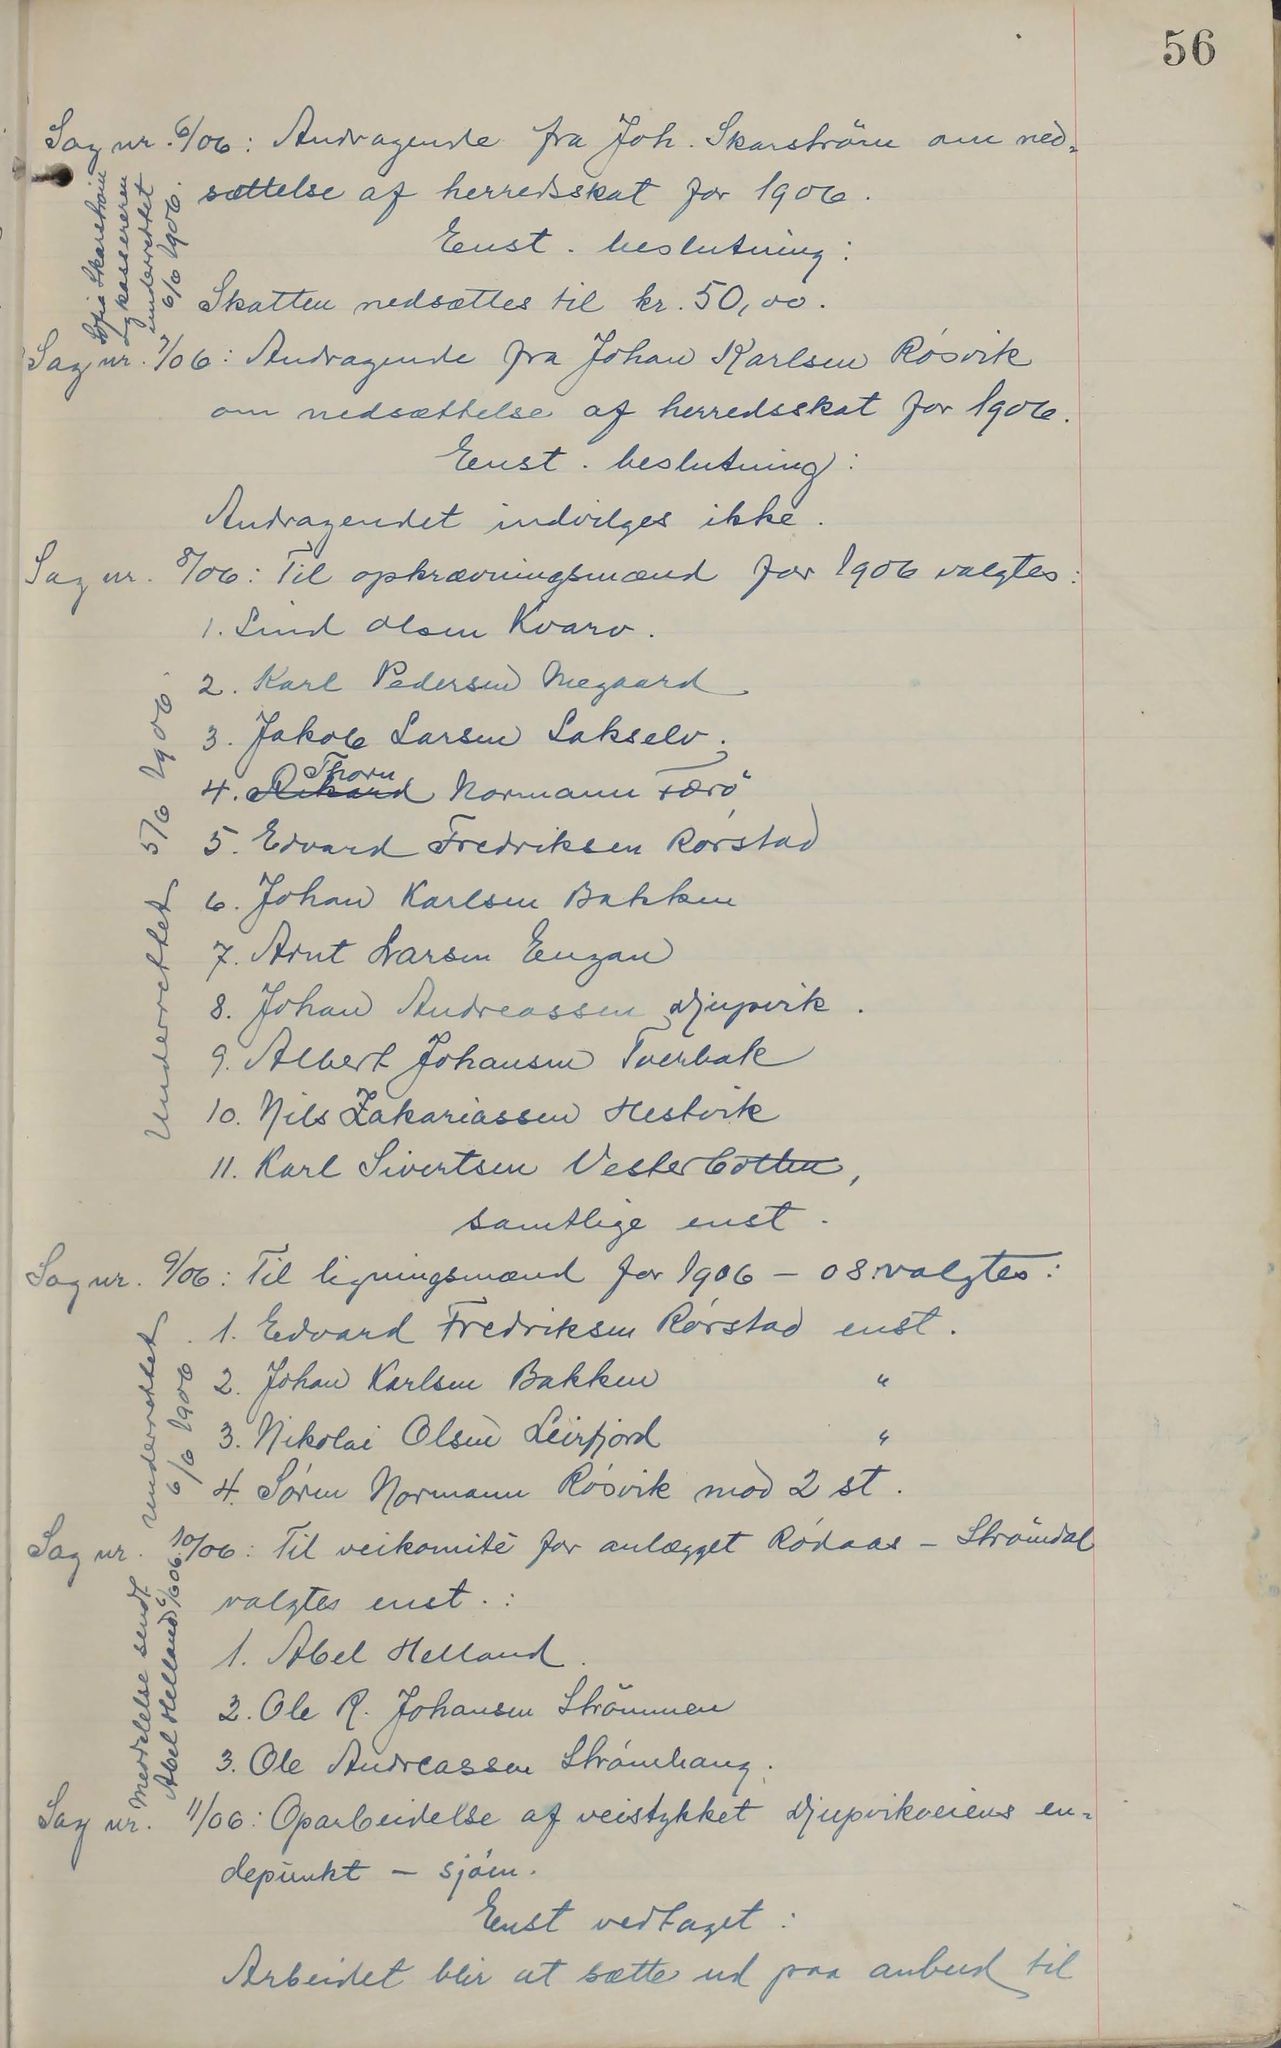 56
Sag nr. 6/06: Andragende fra Joh. Skarström om ned-
sættelse af herredsskat for 1906.
Enst. beslutning:
Skatten nedsættes til kr. 50,00.
Sofia Skarström
og kassereren
underrettet
6/6 1906.
Sag nr. 7/06: Andragende fra Johan Karlsen Rösvik
om nedsættelse af herredsskat for 1906.
Enst. beslutning:
Andragendet indvilges ikke.
Sag nr. 8/06: Til opkrævningsmænd for 1906 valgtes:
1. Lind Olsen Kvarv.
2. Karl Pedersen Megaard
3. Jakob Larsen Lakselv.
4. Rikard Thorn Normann Færö
5. Edvard Fredriksen Rörstad
6. Johan Karlsen Bakken
7. Arnt Larsen Engan
8. Johan Andreassen Djupvik.
9. Albert Johansen Tverbak
10. Nils Zakariassen Hestvik
11. Karl Sivertsen Vesterbotten,
samtlige enst.
Underrettet 5/6 1906.
Sag nr. 9/06: Til ligningsmænd for 1906 – 08 valgtes:
1. Edvard Fredriksen Rörstad enst.
2. Johan Karlsen Bakken "
3. Nikolai Olsen Leirfjord "
4. Sören Normann Rösvik mod 2 st.
underrettet
6/6 1906
Sag nr. 10/06: Til veikomité for anlægget Rödaas – Strömdal
valgtes enst.:
1. Abel Helland.
2. Ole R. Johansen Strömmen
3. Ole Andreassen Strömhaug.
Meddelelse sendt
Abel Helland 6/6 06.
Sag nr. 11/06: Oparbeidelse af veistykket Djupvikveiens en-
depunkt – sjöen.
Enst vedtaget:
Arbeidet blir at sætte ud paa anbud til